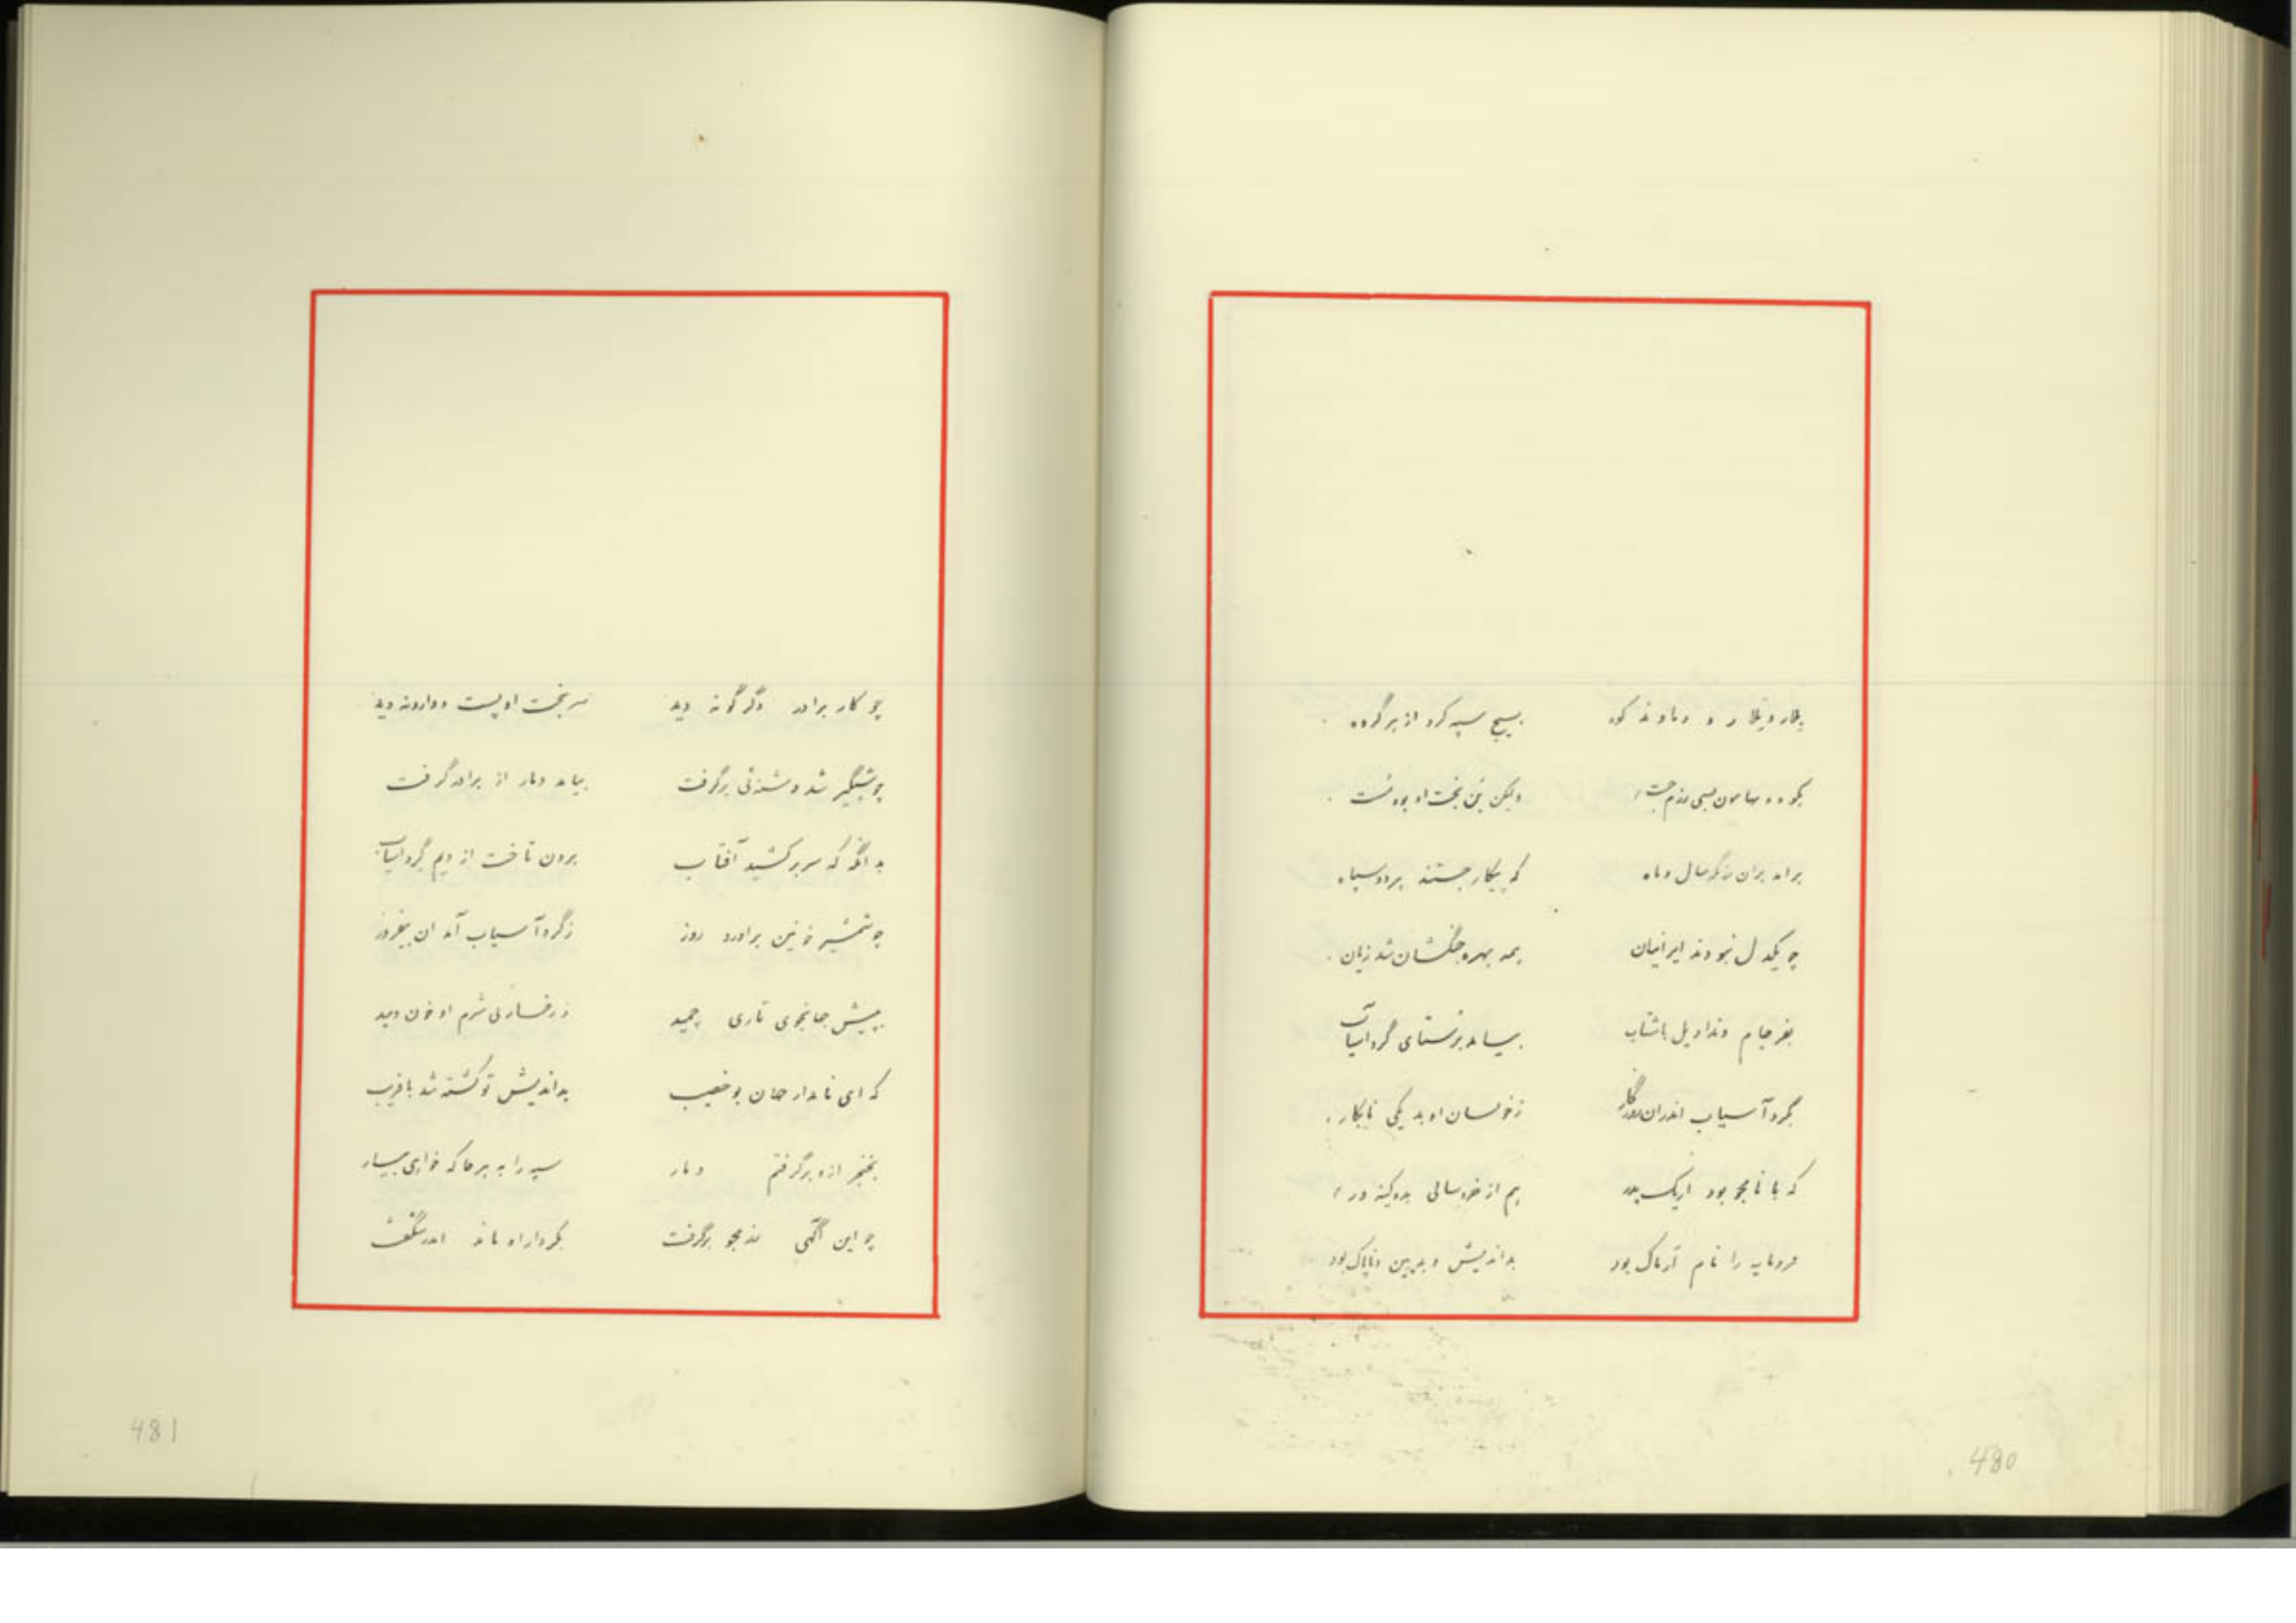 بسیج سپه کرد از هر گروه
بکوه و بهامون بسی رزم جست ولیکن نبن بخت او بود سست
برآمد بران نزگر سال و ماه که پیکار جستند هر دو سپاه
چو یکدل نبودند ایرانیان همه بهره جنگشان شد زیان
بفرجام ونداد یل باشتاب بیامد بر ستای گردآسیاب
بگردآسیاب اندران روزگار ز خویسان او بد یکی نابکار
که با نامجو بود از یک پدر هم از خردسالی بدو کینه ور
فرومایه را نام آرماک بود بداندیش و بدبین و ناپاک بود
480
چو کار برادر دگرگونه دید سر بخت او پست و وارونه دید
چو شبگیر شد دشنه‌ئی برگرفت بیامد دمار از برادر گرفت
بدانگه که سر بر کشید آفتاب برون تاخت از دیم گردآسیاب
چو شمشیر خونین برآورد روز ز گردآسیاب آمد آن
بپیش جهانجوی تازی چمید ز رخسار بی شرم او خون دمید
که ای نامدار جهان بو خصیب بداندیش تو کشته شد بافریب
بخنجر ازو برگرفتم دمار سپه را به هر جا که خواهی بیار
چو این آگهی رزمجو برگرفت بکردار او ماند اندر شگفت
481